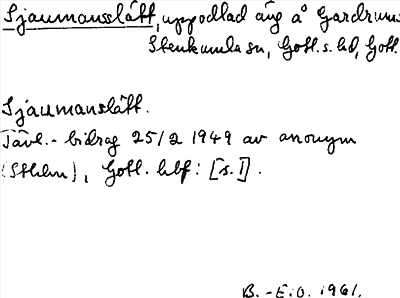 Sjaumansslätt, uppodlad äng å Gardrums
Stenkumla sn, Gotl. s. hd, Gotl.
Sjaumanslätt.
Tävl.- bidrag 25/2 1949 av anonym
(Sthlm), Gotl. hbf: [s. 1].
B. - E. O. 1961.